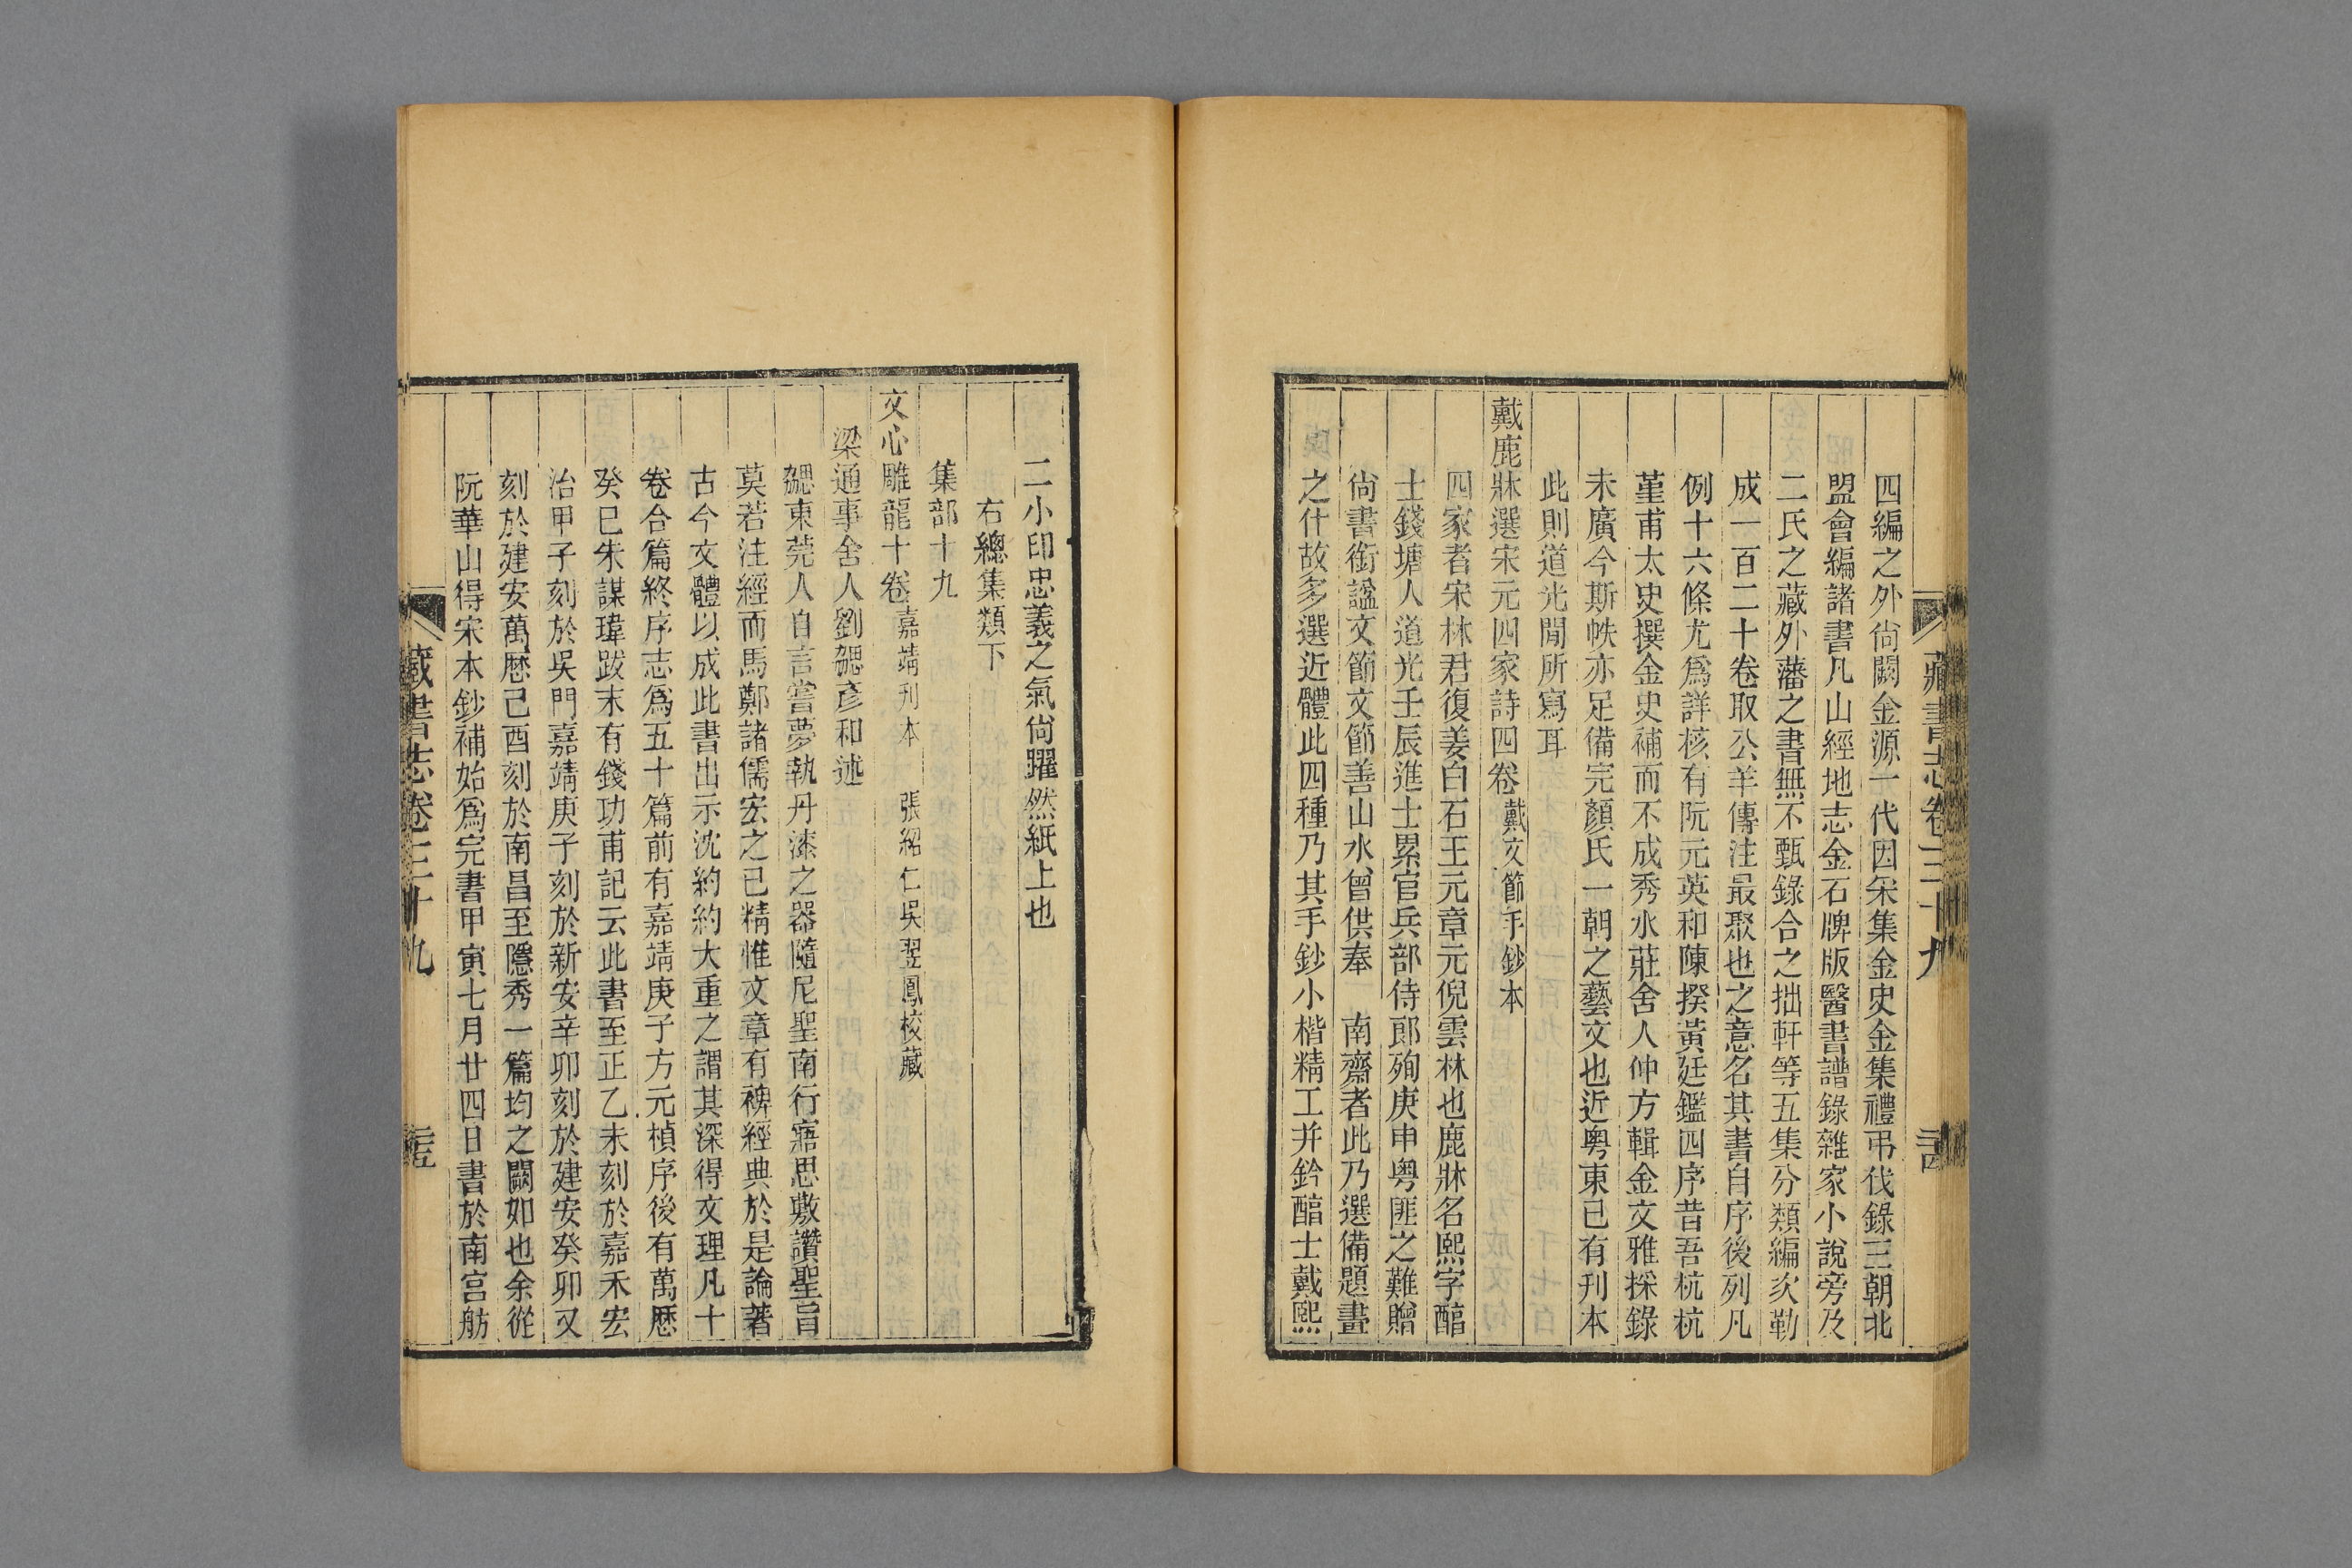 藏書志卷三十九
四編之外尙闕金源一代因宋集金史金集禮弔伐錄三朝北
盟會編諸書凡山經地志金石牌版醫書譜錄雜家小說旁及
二氏之藏外藩之書無不甄錄合之拙軒等五集分類編次勒
成一百二十卷取公羊傳注最聚也之意名其書自序後列凡
例十六條尤爲詳核有阮元英和陳揆黃廷鑑四序昔吾杭杭
堇甫太史撰金史補而不成秀水莊舍人仲方輯金文雅採錄
未廣今斯帙亦足備完顏氏一朝之藝文也近粤東已有刊本
此則道光閒所寫耳
戴鹿牀選宋元四家詩四卷 戴文節手鈔本
四家者宋林君復姜白石王元章元倪雲林也鹿牀名熙字醕
士錢塘人道光壬辰進士累官兵部侍郎殉庚申粤匪之難贈
尙書銜諡文節文節善山水曾供奉 南齋者此乃選備題畫
之什故多選近體此四種乃其手鈔小楷精工并鈐醕士戴熙
二小印忠義之氣尙躍然紙上也
右總集類下
集部十九
文心雕龍十卷 嘉靖刊本 張紹仁吳翌鳳校藏
梁通事舍人劉勰彥和述
勰東莞人自言嘗夢執丹漆之器隨尼聖南行寤思敷讚聖旨
莫若注經而馬鄭諸儒宏之已精惟文章有裨經典於是論著
古今文體以成此書出示沈約約大重之謂其深得文理凡十
卷合篇終序志爲五十篇前有嘉靖庚子方元楨序後有萬厯
癸巳朱謀㙔跋末有錢功甫記云此書至正乙未刻於嘉禾宏
治甲子刻於吳門嘉靖庚子刻於新安辛卯刻於建安癸卯又
刻於建安萬厯己酉刻於南昌至隱秀一篇均之闕如也余從
阮華山得宋本鈔補始爲完書甲寅七月廿四日書於南宮舫
藏書志卷三十九